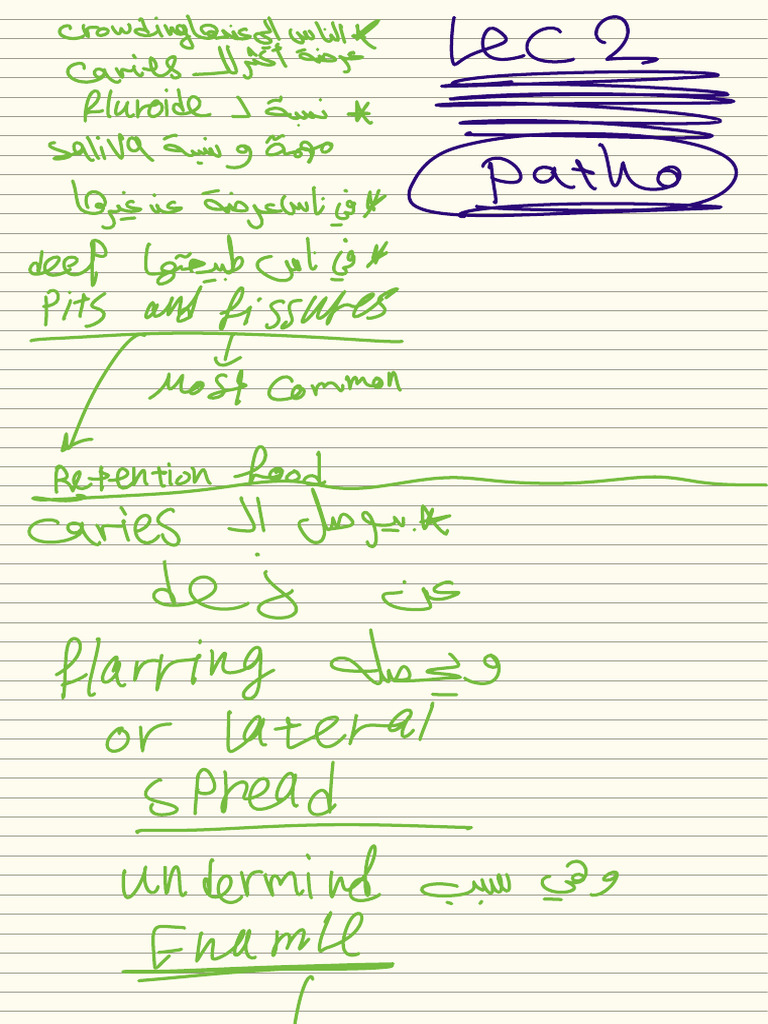 Lec 2
Patho
* الناس الي عندها crowding
عرضة أكثر للـ caries
* نسبة لـ fluroide
مهمة و نسبة saliva
* في ناس عرضة عن غيرها
* في ناس طبيعتها deep
Pits and fissures
Most common
Retention food
* بيوصل الـ caries
عن dej
و يحصله flarring
or lateral
spread
وهي سبب undermind
Enamle